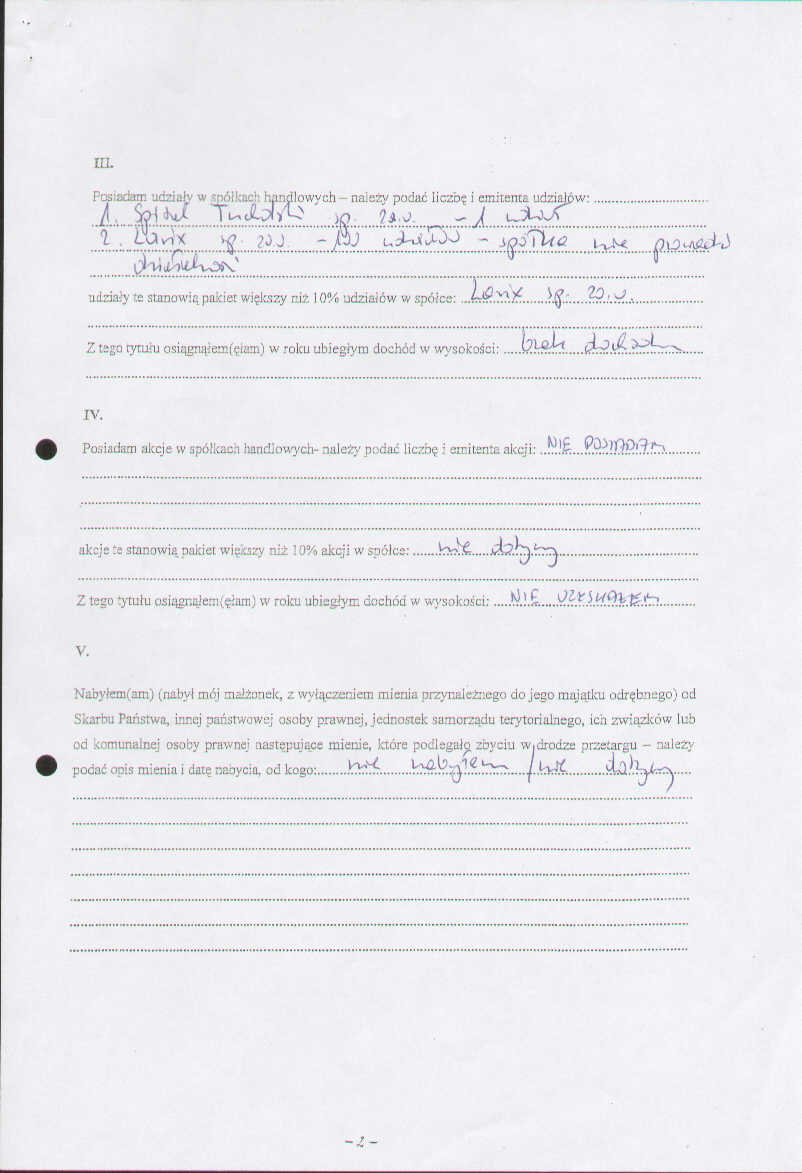 III.
Posiadam udziały w spółkach handlowych – należy podać liczbę i emitenta udziałów: ..............................
1. Szpital Tucholski sp. z o.o. – 1 udział
2. Larix sp. z o.o. – 100 udziałów – spółka nie prowadzi
działalności
udziały te stanowią pakiet większy niż 10% udziałów w spółce: ... Larix sp. z o.o. ...
Z tego tytułu osiągnąłem(ęłam) w roku ubiegłym dochód w wysokości: ..... brak dochodu .....
IV.
Posiadam akcje w spółkach handlowych- należy podać liczbę i emitenta akcji: ... NIE POSIADAM .........
akcje te stanowią pakiet większy niż 10% akcji w spółce: ...... nie dotyczy ......
Z tego tytułu osiągnąłem(ęłam) w roku ubiegłym dochód w wysokości: .... NIE UZYSKAŁEM .........
V.
Nabyłem(am) (nabył mój małżonek, z wyłączeniem mienia przynależnego do jego majątku odrębnego) od
Skarbu Państwa, innej państwowej osoby prawnej, jednostek samorządu terytorialnego, ich związków lub
od komunalnej osoby prawnej następujące mienie, które podlegało zbyciu w drodze przetargu – należy
podać opis mienia i datę nabycia, od kogo:........ nie nabyłem / nie dotyczy ....
– 2 –